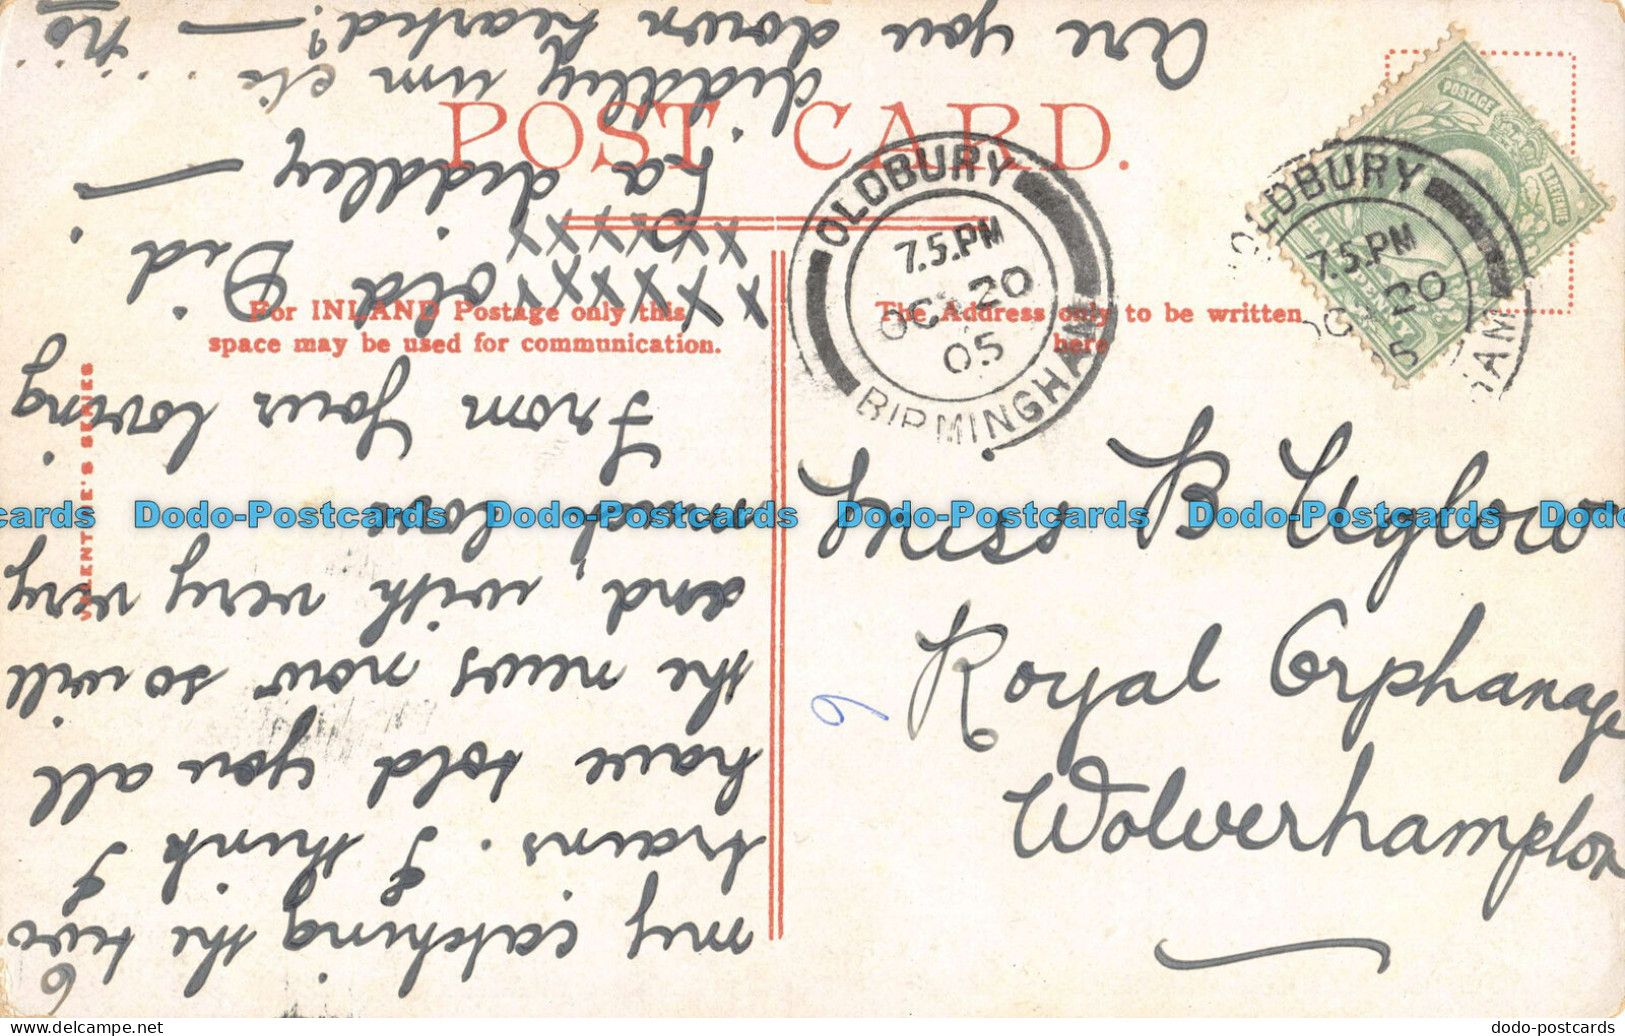 POST CARD.
For INLAND Postage only this
space may be used for communication.
The Address only to be written
here
VALENTINE'S SERIES
POSTAGE
REVENUE
HALFPENNY
OLDBURY
7.5.PM
OC 20
05
BIRMINGHAM
OLDBURY
7.5.PM
OC 20
5
HAM
Miss B Uglow
Royal Orphanage
Wolverhampton
6
6
my catching the two
trains. I think I
have told you all
the news now so will
end, with very very
much love
From Your loving
old Did.
xxxxxxx
xxxxxxx
Ta diddley —
diddley um etc
Are you down hearted? — "no"
Dodo-Postcards Dodo-Postcards Dodo-Postcards Dodo-Postcards Dodo
http://www.delcampe.net
dodo-postcards